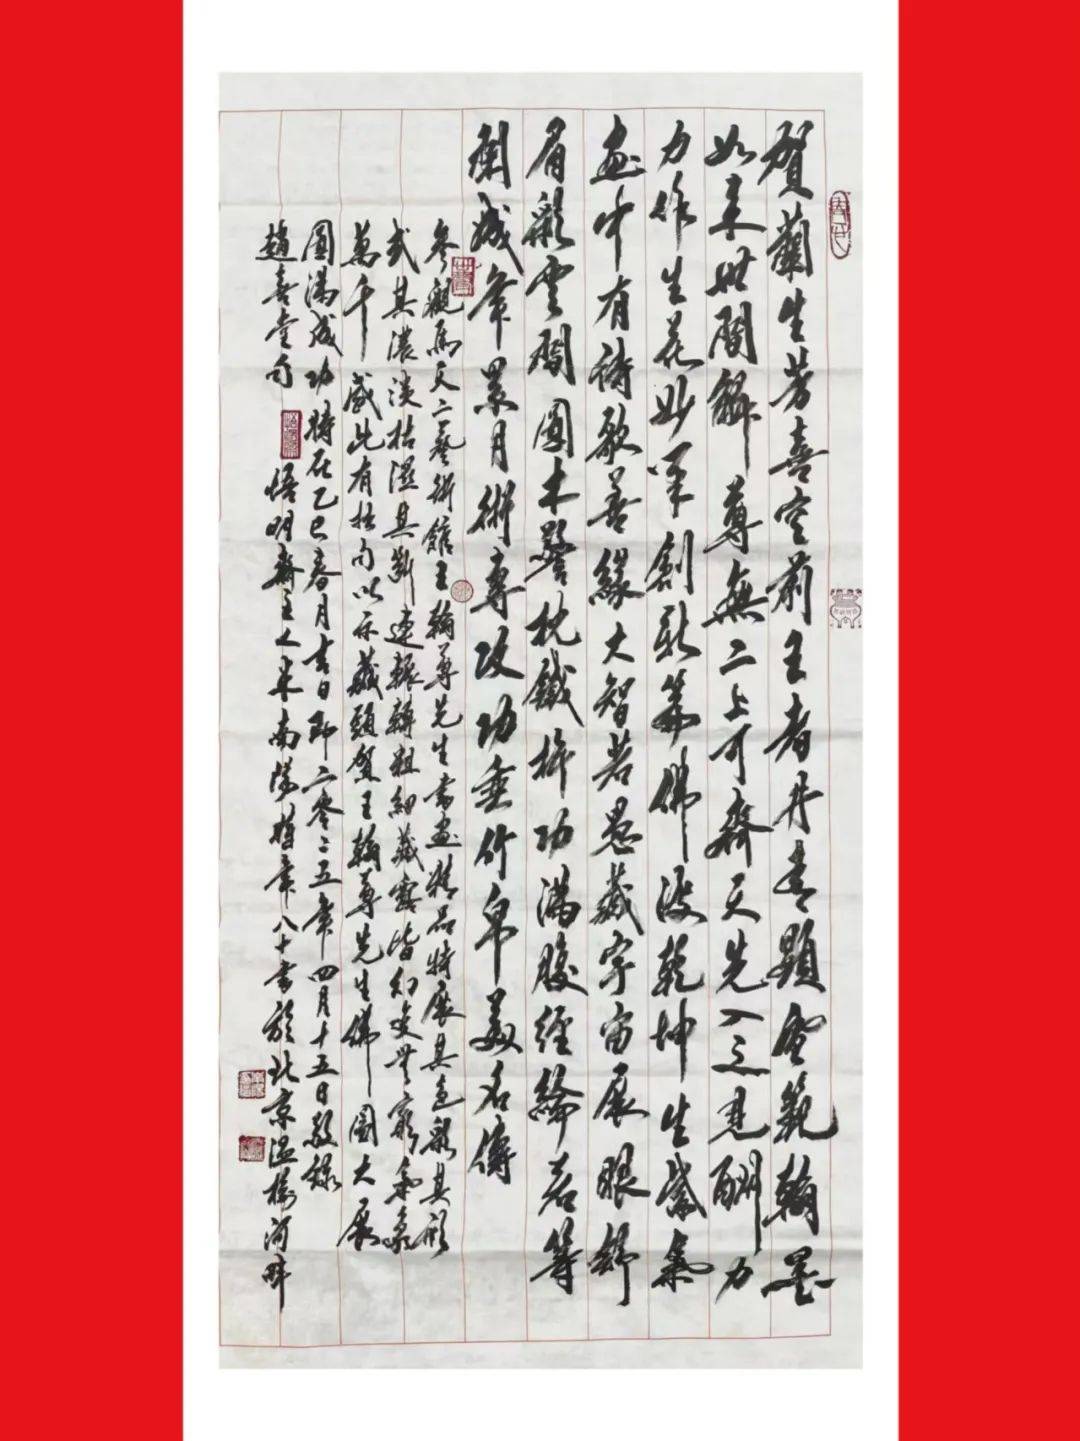 賀蘭生芳喜空前王者丹青顯聖範翰墨
如來世間解尊無二上可齊天先入之見酬力
力作生花妙筆創新篇佛法乾坤生紫氣
畫中有詩歌善緣大智若愚藏宇宙展眼舒
眉彩雲間圓木警枕鐵杵功滿腹經綸若等
閑成年累月術專攻功垂竹帛美名傳
參觀馬天二藝術館王翰尊先生書畫精品特展其色彩其形
式其濃淡枯濕其斷連輾轉粗細藏露皆幻變無窮氣象
萬千感此有拙句以示藏頭賀王翰尊先生佛圖大展
圓滿成功時在乙巳春月吉日即二零二五年四月十五日敬錄
趙喜堂句 悟明齋主人朱南陽舊年八十書於北京溫榆河畔